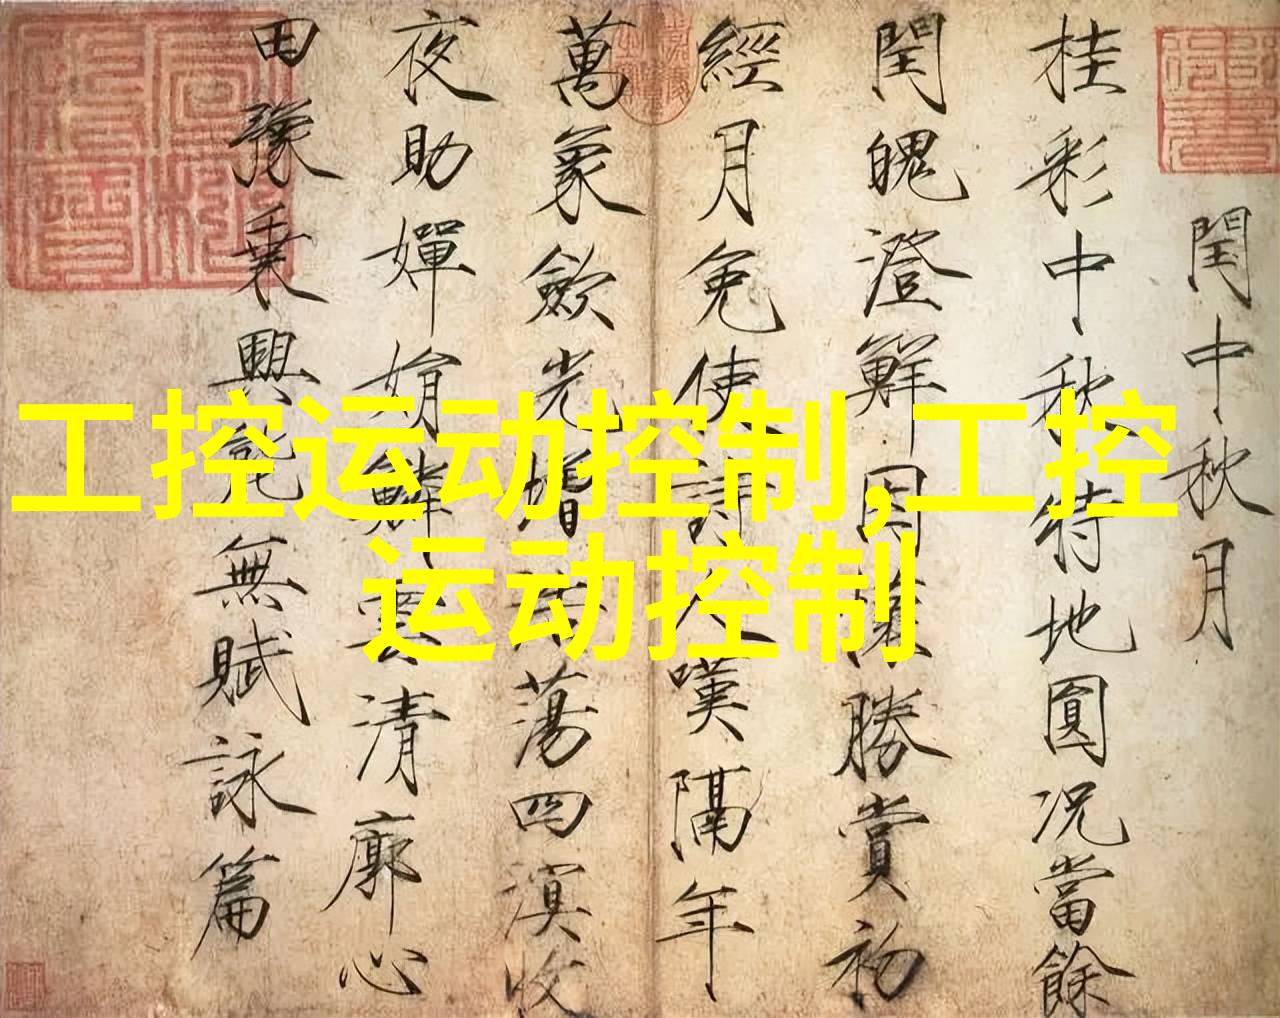 工控运动控制,工控
运动控制
閏中秋月
桂彩中秋特地圓況當餘
閏魄澄鮮因懷勝賞初
經月免使詩人嘆隔年
萬象斂光增浩蕩四溟收
夜助嬋娟鱗雲清廓心
田豫乘興能無賦詠篇